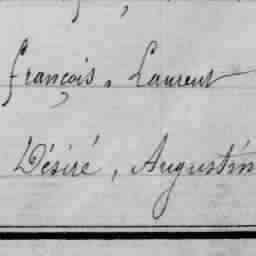 françois, Laurent
Désiré, Augustin